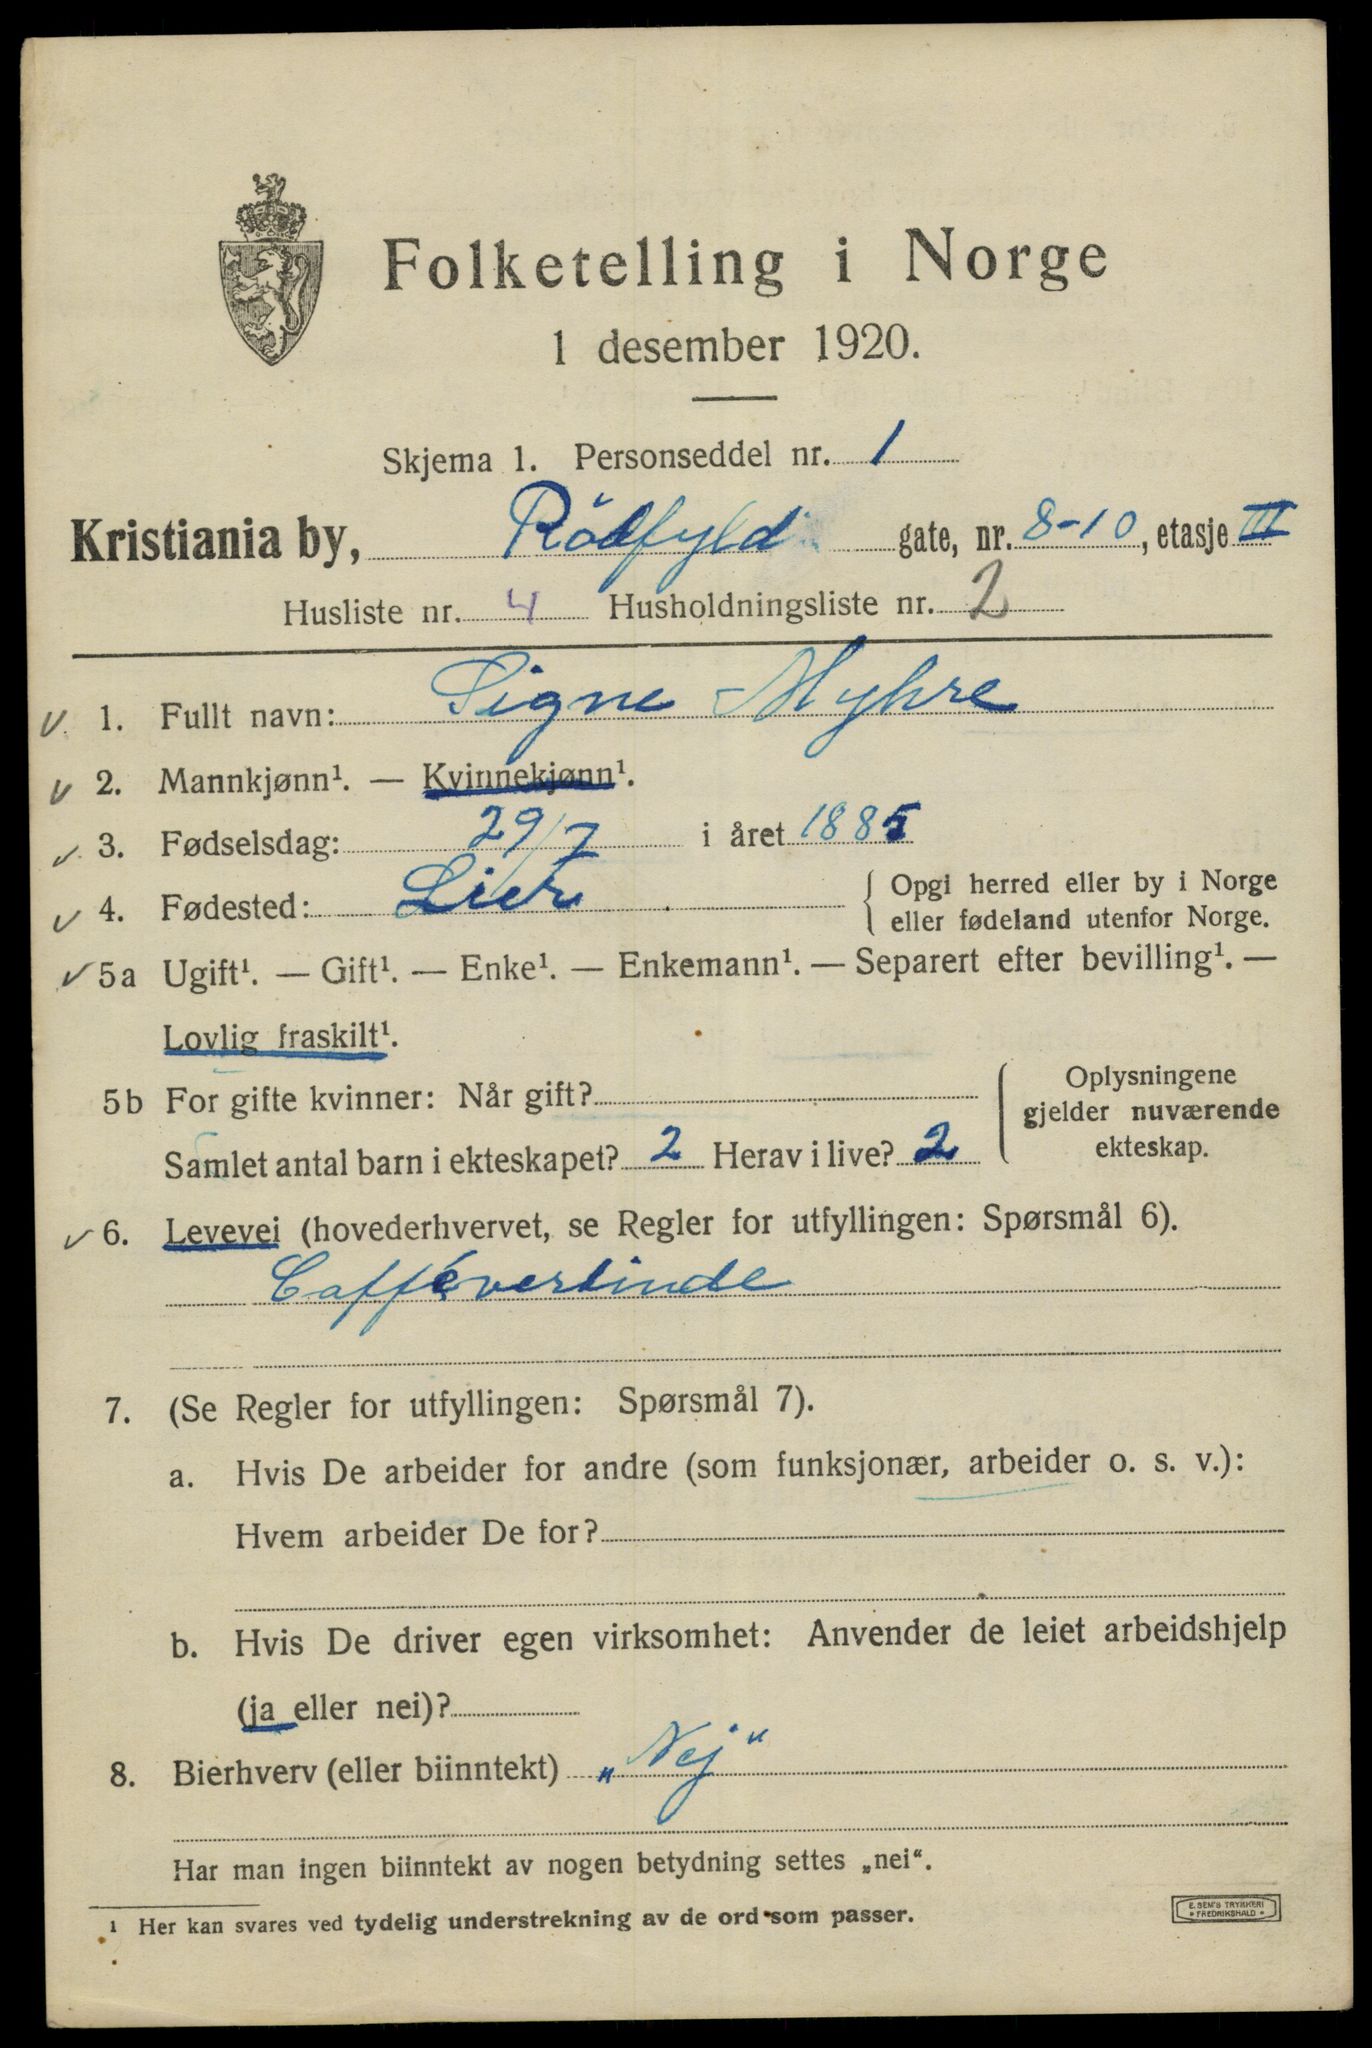 Folketelling i Norge
1 desember 1920.
Skjema 1. Personseddel nr. 1
Kristiania by, Rödfyld gate, nr. 8-10, etasje III
Husliste nr. 4 Husholdningsliste nr. 2
1. Fullt navn: Signe Myhre
2. Mannkjønn¹. — Kvinnekjønn¹.
3. Fødselsdag: 29/7 i året 1885
4. Fødested: Lier { Opgi herred eller by i Norge
eller fødeland utenfor Norge.
5a Ugift¹. — Gift¹. — Enke¹. — Enkemann¹. — Separert efter bevilling¹. —
Lovlig fraskilt¹.
5b For gifte kvinner: Når gift?
Samlet antal barn i ekteskapet? 2 Herav i live? 2
Oplysningene
gjelder nuværende
ekteskap.
6. Levevei (hovederhvervet, se Regler for utfyllingen: Spørsmål 6).
Caffévertinde
7. (Se Regler for utfyllingen: Spørsmål 7).
a. Hvis De arbeider for andre (som funksjonær, arbeider o. s. v.):
Hvem arbeider De for?
b. Hvis De driver egen virksomhet: Anvender de leiet arbeidshjelp
(ja eller nei)?
8. Bierhverv (eller biinntekt) „Nej"
Har man ingen biinntekt av nogen betydning settes „nei“.
¹ Her kan svares ved tydelig understrekning av de ord som passer.
E. SEM'S TRYKKERI
* FREDRIKSHALD *